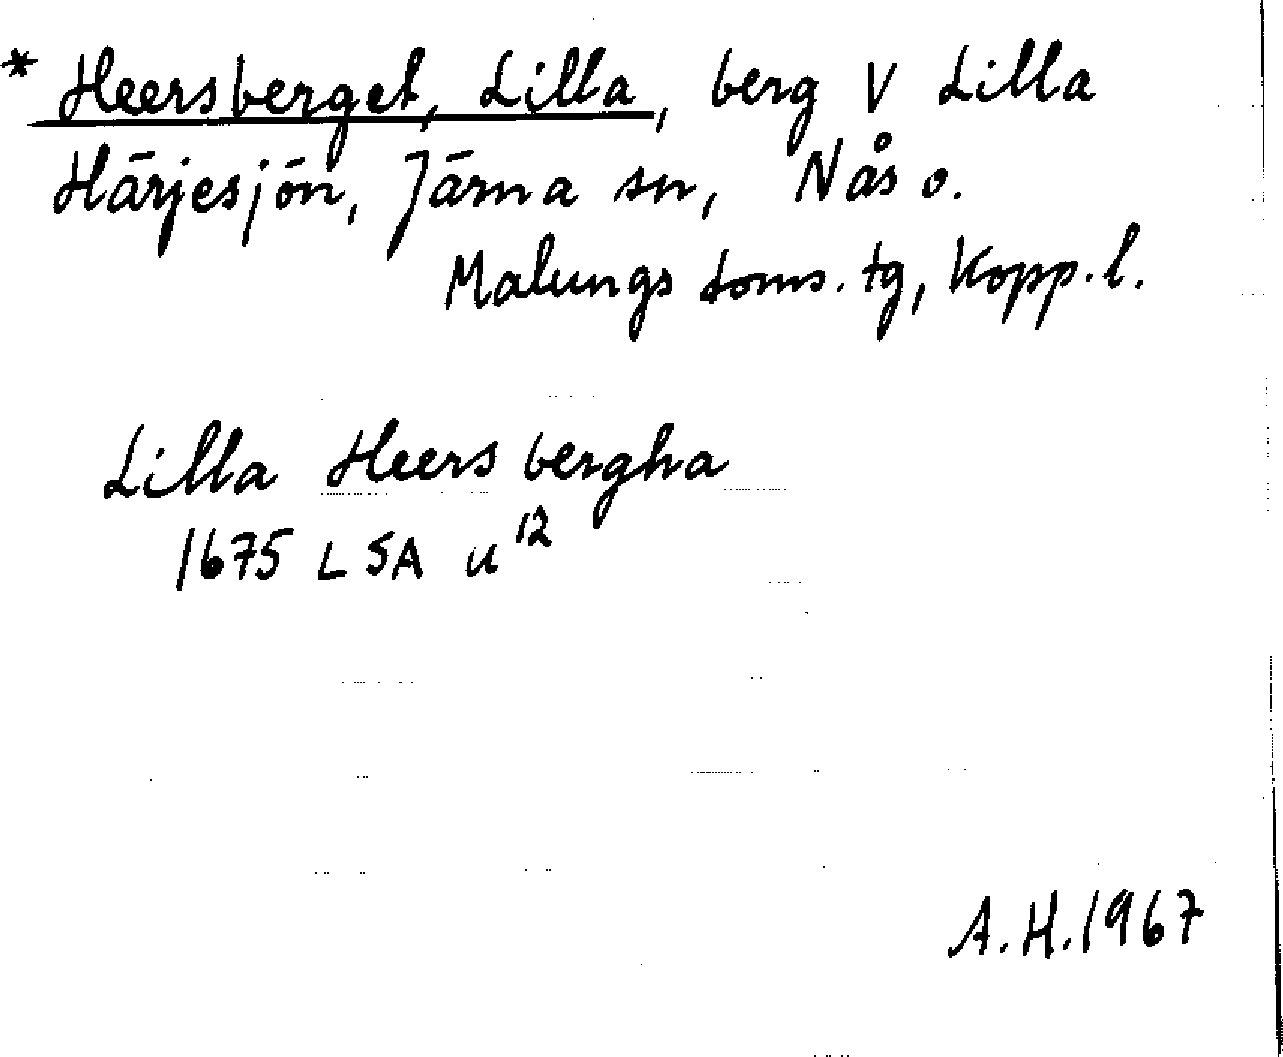 * Heersberget, Lilla, berg V Lilla
Härjesjön, Järna sn, Nås o.
Malungs doms. tg, Kopp. l.
Lilla Heers bergha
1675 LSA u¹²
A.H. 1967